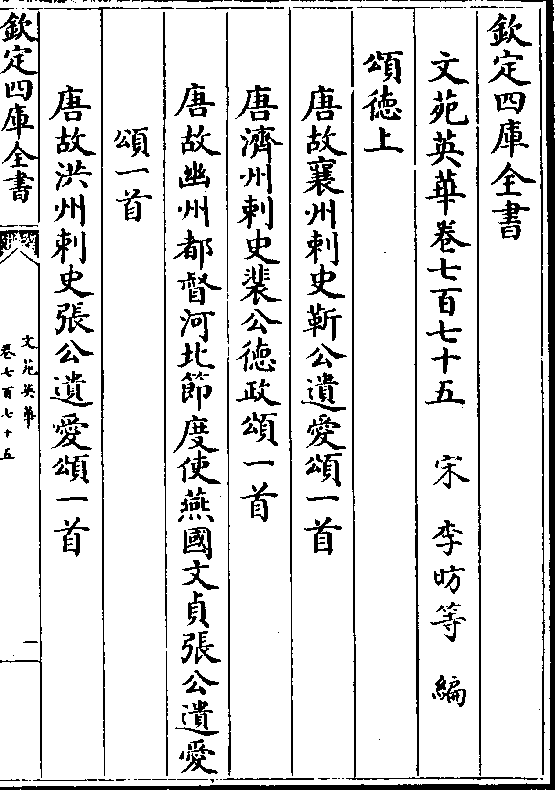 欽定四庫全書
文苑英華卷七百七十五　宋　李昉等　編
頌徳上
唐故襄州刺史靳公遺愛頌一首
唐濟州刺史裴公徳政頌一首
唐故幽州都督河北節度使燕國文貞張公遺愛
頌一首
唐故洪州刺史張公遺愛頌一首
欽定四庫全書
文苑英華
卷七百七十五
一